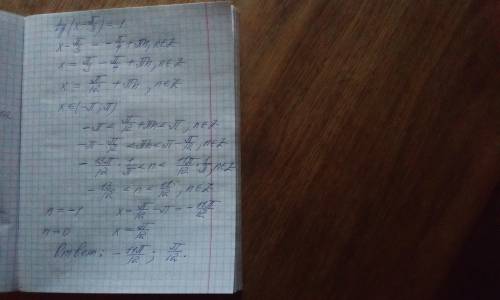 tg(x-π/3)=-1
x-π/3=-π/4+πn, n∈Z
x=π/3-π/4+πn, n∈Z
x=π/12+πn, n∈Z
x∈(-π;π)
-π<π/12+πn<π, n∈Z
-π-π/12<πn<π-π/12, n∈Z
-13π/12·1/π<n<11π/12·1/π, n∈Z
-13/12<n<11/12, n∈Z
n=-1 x=π/12-π=-11π/12
n=0 x=π/12
Ответ: -11π/12; π/12.